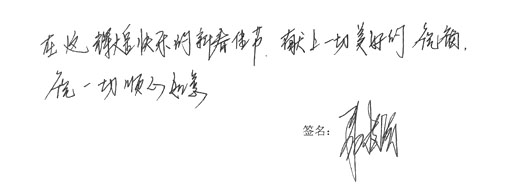 在这辉煌快乐的新春佳节,献上一切美好的祝福,
祝一切顺心如意
签名: